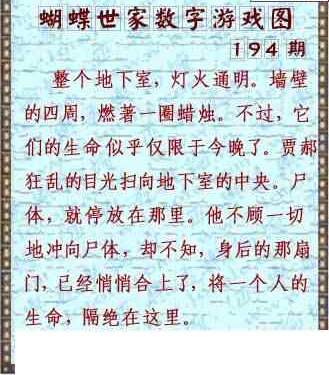 蝴蝶世家数字游戏图
194期
整个地下室，灯火通明。墙壁
的四周，燃著一圈蜡烛。不过，它
们的生命似乎仅限于今晚了。贾郝
狂乱的目光扫向地下室的中央。尸
体，就停放在那里。他不顾一切
地冲向尸体，却不知，身后的那扇
门，已经悄悄合上了，将一个人的
生命，隔绝在这里。